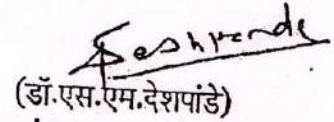 Deshpande
(डॉ.एस.एम.देशपांडे)